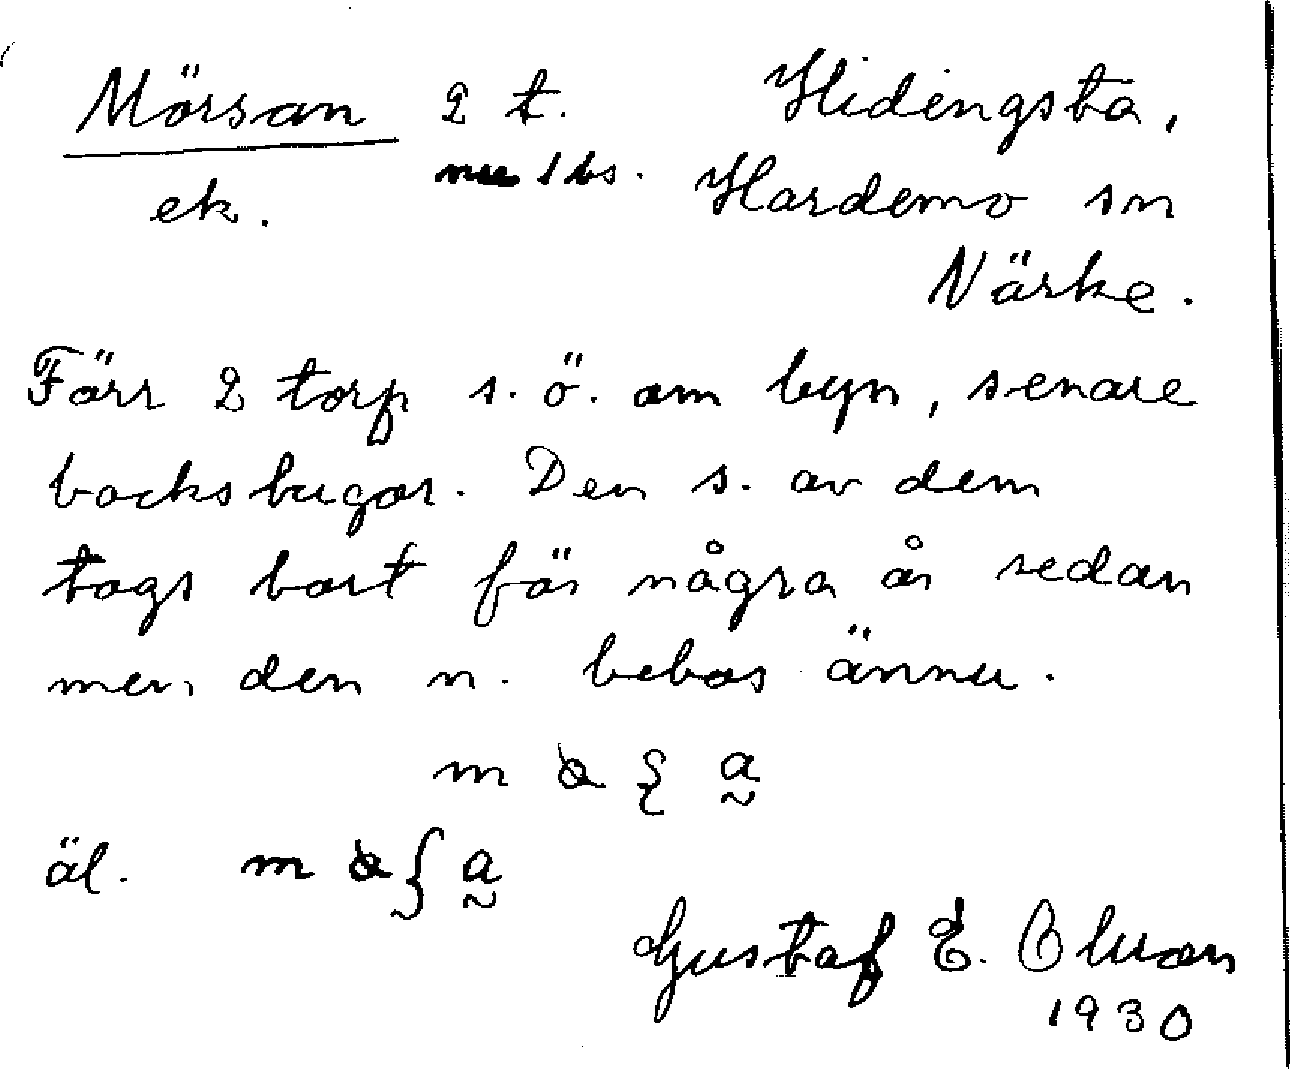 Mörsan 2 t. Hidingsta,
ek. nu 1 bs. Hardemo sn
Närke.
Förr 2 torp s.ö. om byn, senare
backstugor. Den s. av dem
togs bort för några år sedan
men den n. bebos ännu.
äl.
Gustaf E. Olson
1930